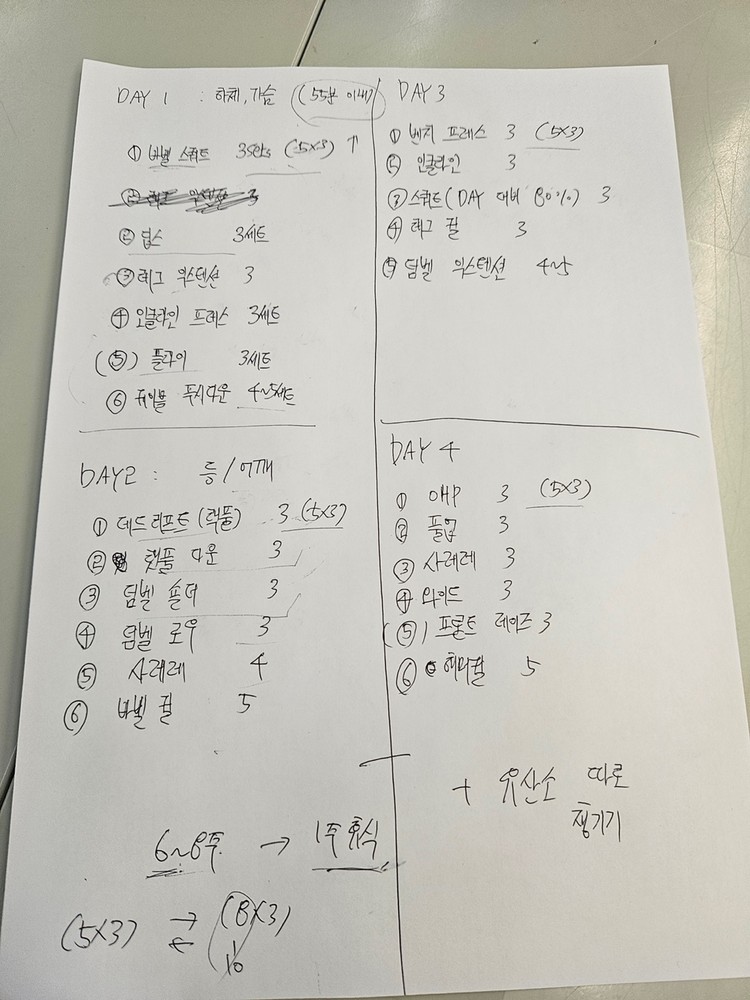 DAY 1 : 하체, 가슴 (55분 이내)
① 바벨 스쿼트 3sets (5×3) ↑
② 레그 익스텐션 3
② 딥스 3세트
③ 레그 익스텐션 3
④ 인클라인 프레스 3세트
(⑤) 플라이 3세트
⑥ 케이블 푸시다운 4~5세트
DAY 3
① 벤치 프레스 3 (5×3)
② 인클라인 3
③ 스쿼트 (DAY 대비 80%) 3
④ 레그 컬 3
⑤ 덤벨 익스텐션 4~5
DAY2 : 등/어깨
① 데드리프트 (랙풀) 3 (5×3)
② 랫풀 다운 3
③ 덤벨 숄더 3
④ 덤벨 로우 3
⑤ 사레레 4
⑥ 바벨 컬 5
DAY 4
① OHP 3 (5×3)
② 풀업 3
③ 사레레 3
④ 와이드 3
(⑤) 프론트 레이즈 3
⑥ 해머컬 5
+ 유산소 따로
챙기기
6~8주 → 1주 휴식
(5×3) ⇄ (8×3)
10